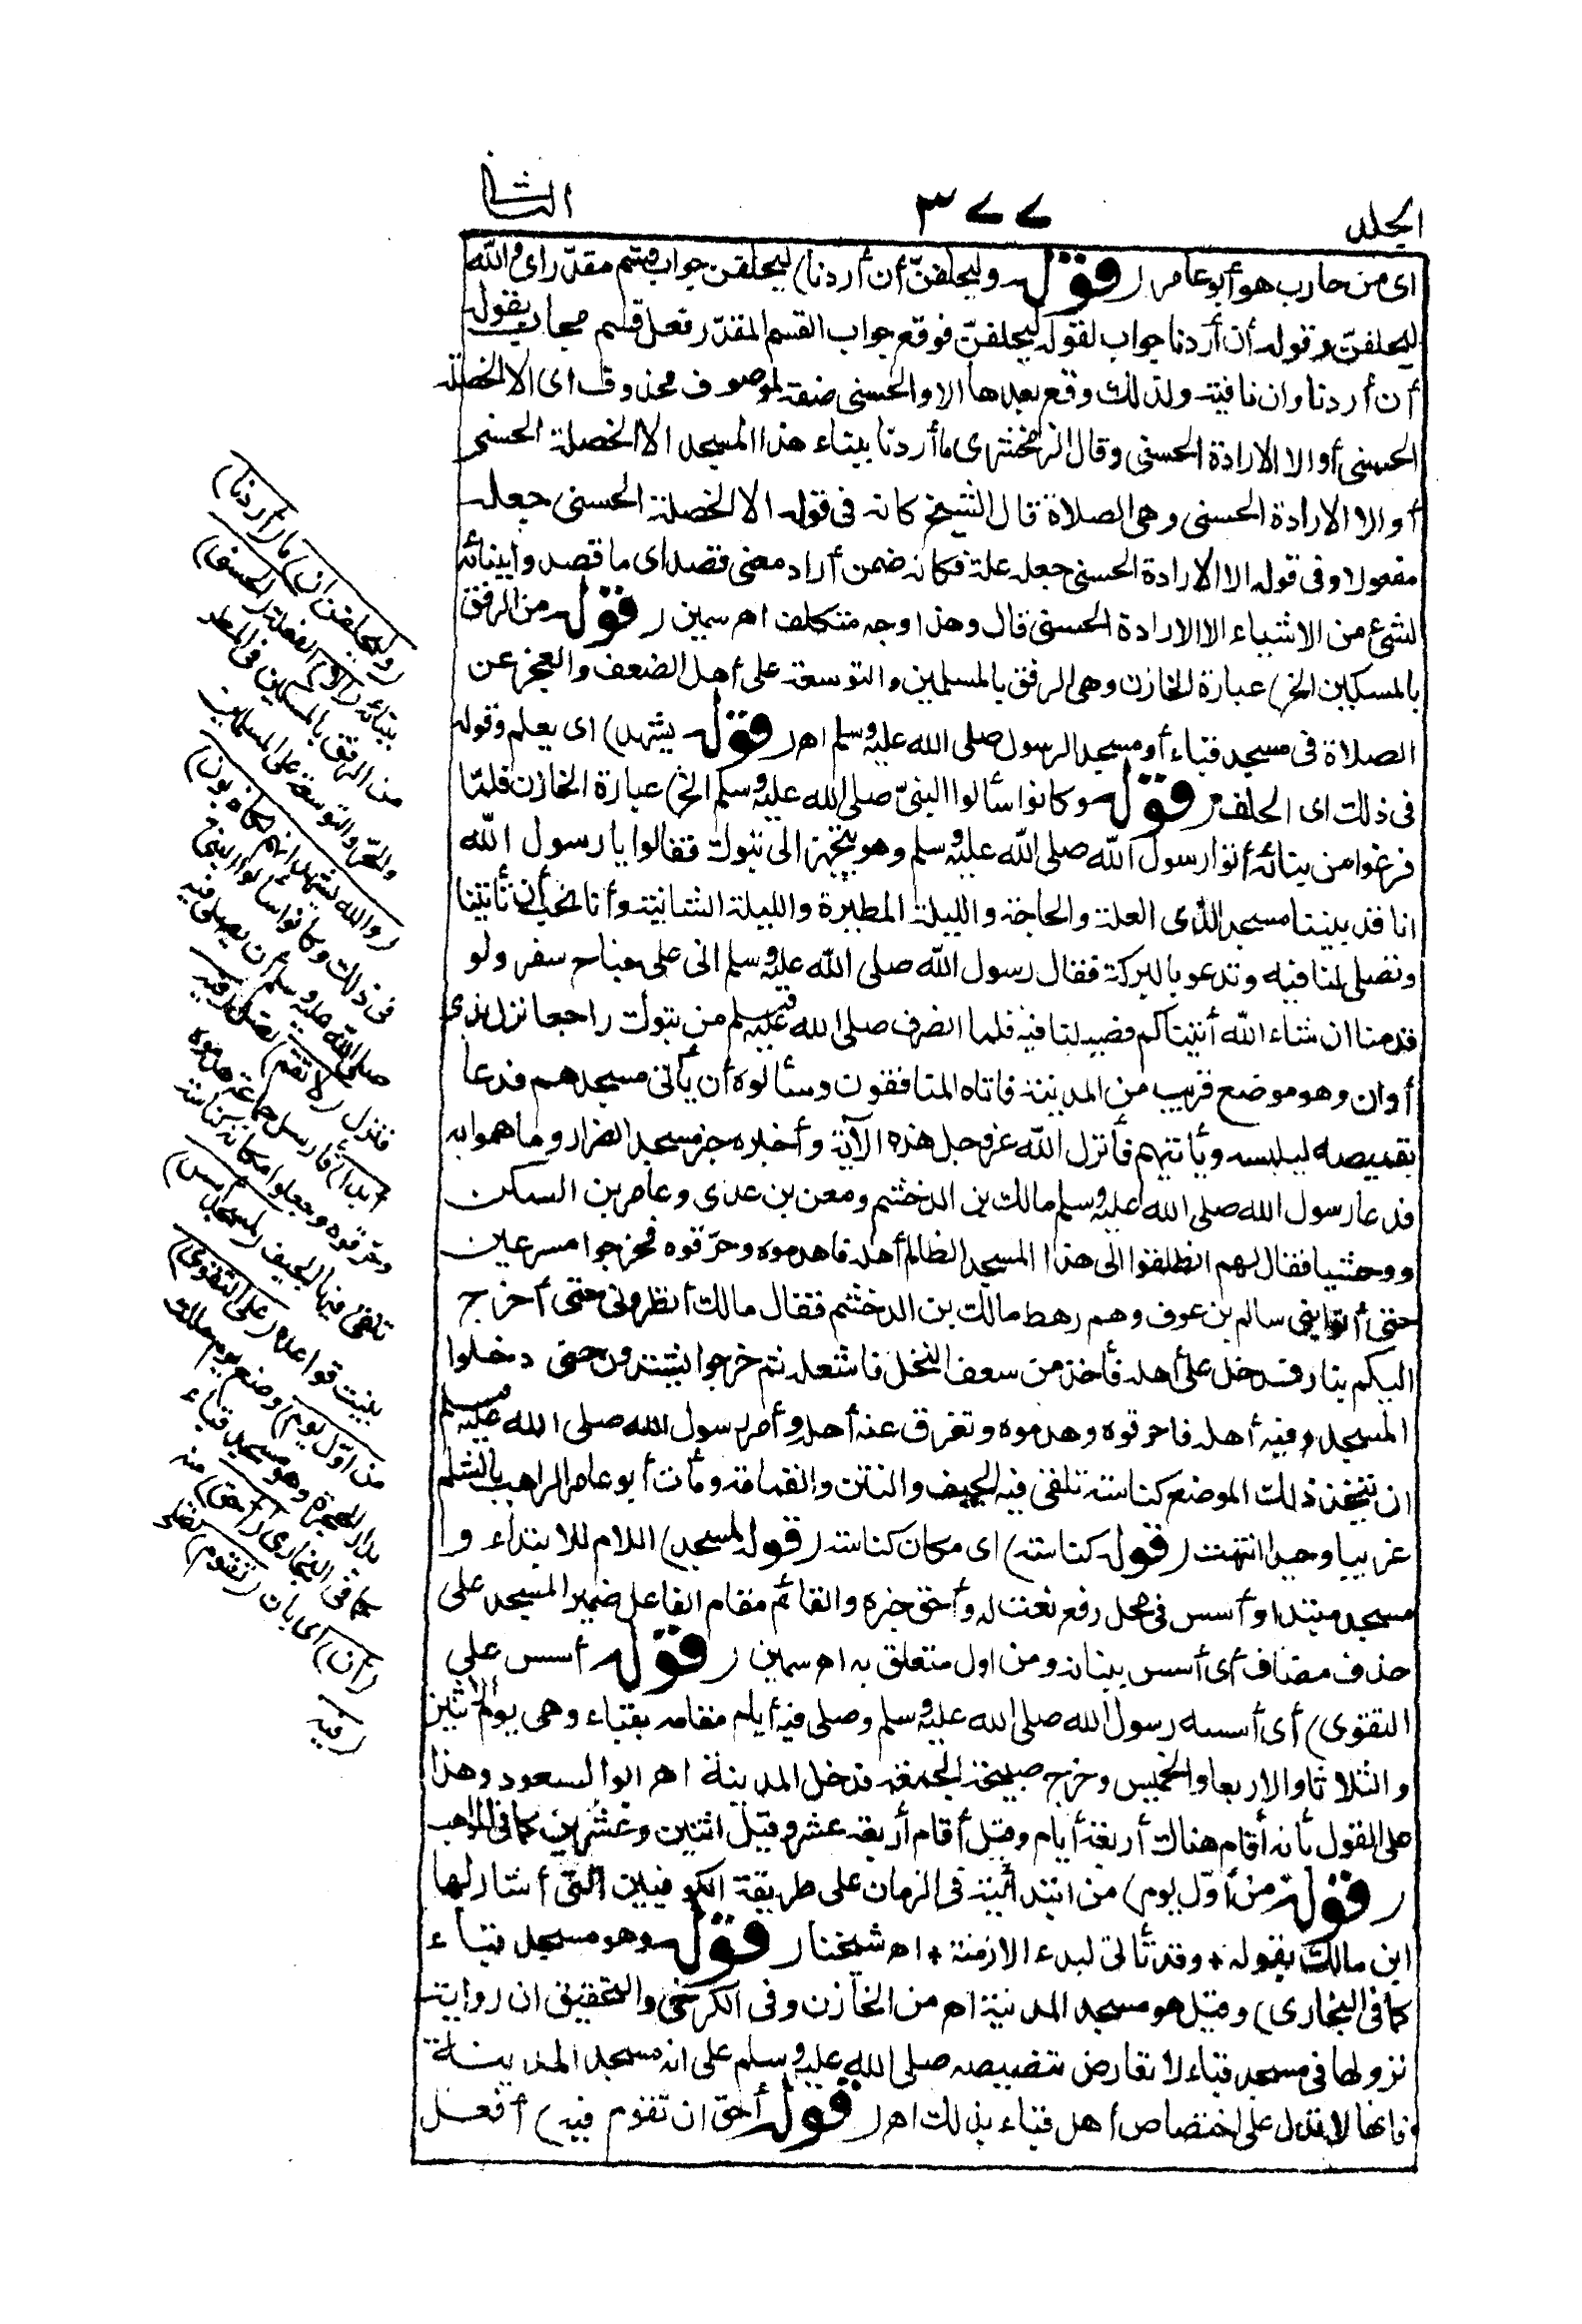 الجلد
٣٧٧
الثانى
اى من حارب هو أبو عامر (قوله وليحلفنّ أن أردنا) ليحلفن جواب قسم مقدّر اى والله
ليحلفنّ وقوله أن أردنا جواب لقوله ليحلفنّ فوقع جواب القسم المقدّر فعل قسم مجاب بقوله
أن أردنا وان نافية ولذلك وقع بعدها الا والحسنى صفة لموصوف محذوف اى الا الخصلة
الحسنى أو الا الارادة الحسنى وقال الزمخشرى ما أردنا ببناء هذا المسجد الا الخصلة الحسنى
أو الا الارادة الحسنى وهى الصلاة قال الشيخ كانه فى قوله الا الخصلة الحسنى جعله
مفعولا وفى قوله الا الارادة الحسنى جعله علة فكانه ضمن أراد معنى قصد اى ما قصدوا ببنائه
لشئ من الاشياء الا الارادة الحسنى قال وهذا وجه متكلف اهـ سمين (قوله من الرفق
بالمسكين الخ) عبارة الخازن وهى الرفق بالمسلمين والتوسعة على أهل الضعف والعجز عن
الصلاة فى مسجد قباء أو مسجد الرسول صلى الله عليه وسلم اهـ (قوله يشهد) اى يعلم وقوله
فى ذلك اى الحلف (قوله وكانوا سألوا النبىّ صلى الله عليه وسلم الخ) عبارة الخازن فلمّا
فرغوا من بنائه أتوا رسول الله صلى الله عليه وسلم وهو يتجهز الى تبوك فقالوا يا رسول الله
انا قد بنينا مسجد الذى العلة والحاجة والليلة المطيرة والليلة الشاتية وأنا نحب أن تأتينا
وتصلى لنا فيه وتدعو بالبركة فقال رسول الله صلى الله عليه وسلم انى على جناح سفر ولو
قدمنا ان شاء الله أتيناكم فصلينا لنا فيه فلما انصرف صلى الله عليه وسلم من تبوك راجعا نزل بذى
أوان وهو موضع قريب من المدينة فاتاه المنافقون وسألوه أن يأتى مسجدهم فدعا
بقميصه ليلبسه ويأتيهم فأنزل الله عز وجل هذه الآية وأخبره خبر مسجد الضرار وما هموا به
فدعا رسول الله صلى الله عليه وسلم مالك بن الدخشم ومعن بن عدى وعامر بن السكن
ووحشيا فقال لهم انطلقوا الى هذا المسجد الظالم أهله فاهدموه وحرّقوه فخرجوا مسرعين
حتى أتوا بنى سالم بن عوف وهم رهط مالك بن الدخشم فقال مالك أنظرونى حتى أخرج
اليكم بنار فدخل على أهله فأخذ من سعف النخل فاشعله ثم خرجوا يشتدون حتى دخلوا
المسجد وفيه أهله فاحرقوه وهدموه وتفرق عنه أهله وأمر رسول الله صلى الله عليه وسلم
ان يتخذ ذلك الموضع كناسة تلقى فيه الجيف والنتن والقمامة ومات أبو عامر الراهب بالشام
غريبا وحيدا انتهت (قوله كناسة) اى مكان كناسة (قوله لمسجد) اللام للابتداء و
مسجد مبتدا وأسس فى محل رفع نعت له وأحق خبره والقائم مقام الفاعل ضمير المسجد على
حذف مضاف أى أسس بنيانه ومن اول متعلق به اهـ سمين (قوله أسس على
التقوى) أى أسسه رسول الله صلى الله عليه وسلم وصلى فيه أيام مقامه بقباء وهى يوم الاثنين
والثلاثا والاربعا والخميس وخرج صبيحة الجمعة فدخل المدينة اهـ ابو السعود وهذا
على القول بأنه أقام هناك أربعة أيام وقيل أقام أربعة عشر وقيل اثنين وعشرين كما فى المواهب
(قوله من أوّل يوم) من ابتدائية فى الزمان على طريقة الكوفيين التى أشار لها
ابن مالك بقوله * وقد تأتى لبدء الازمنة * اهـ شيخنا (قوله وهو مسجد قباء
كما فى البخارى) وقيل هو مسجد المدينة اهـ من الخازن وفى الكرخى والتحقيق ان رواية
نزولها فى مسجد قباء لا تعارض تنصيصه صلى الله عليه وسلم على انه مسجد المدينة
فانها لا تدل على اختصاص أهل قباء بذلك اهـ (قوله أحق ان تقوم فيه) أفعل
(وليحلفن ان) ما (أردنا)
ببنائه (الا) الفعلة (الحسنى)
من الرفق بالمسكين فى المطر
والحرّ والتوسعة على المسلمين
(والله يشهد انهم لكاذبون)
فى ذلك وكانوا سألوا النبىّ
صلى الله عليه وسلم أن يصلى فيه
فنزل (لا تقم) تصلّ (فيه
أبدا) فأرسل جماعة هدموه
وحرّقوه وجعلوا مكانه كناسة
تلقى فيها الجيف (لمسجد أسس)
بنيت قواعده (على التقوى)
من أوّل يوم) وضع يوم حللت
بدار الهجرة وهو مسجد قباء
كما فى البخارى (أحق) منه
(أن) اى بان (تقوم) تصلى
(فيه